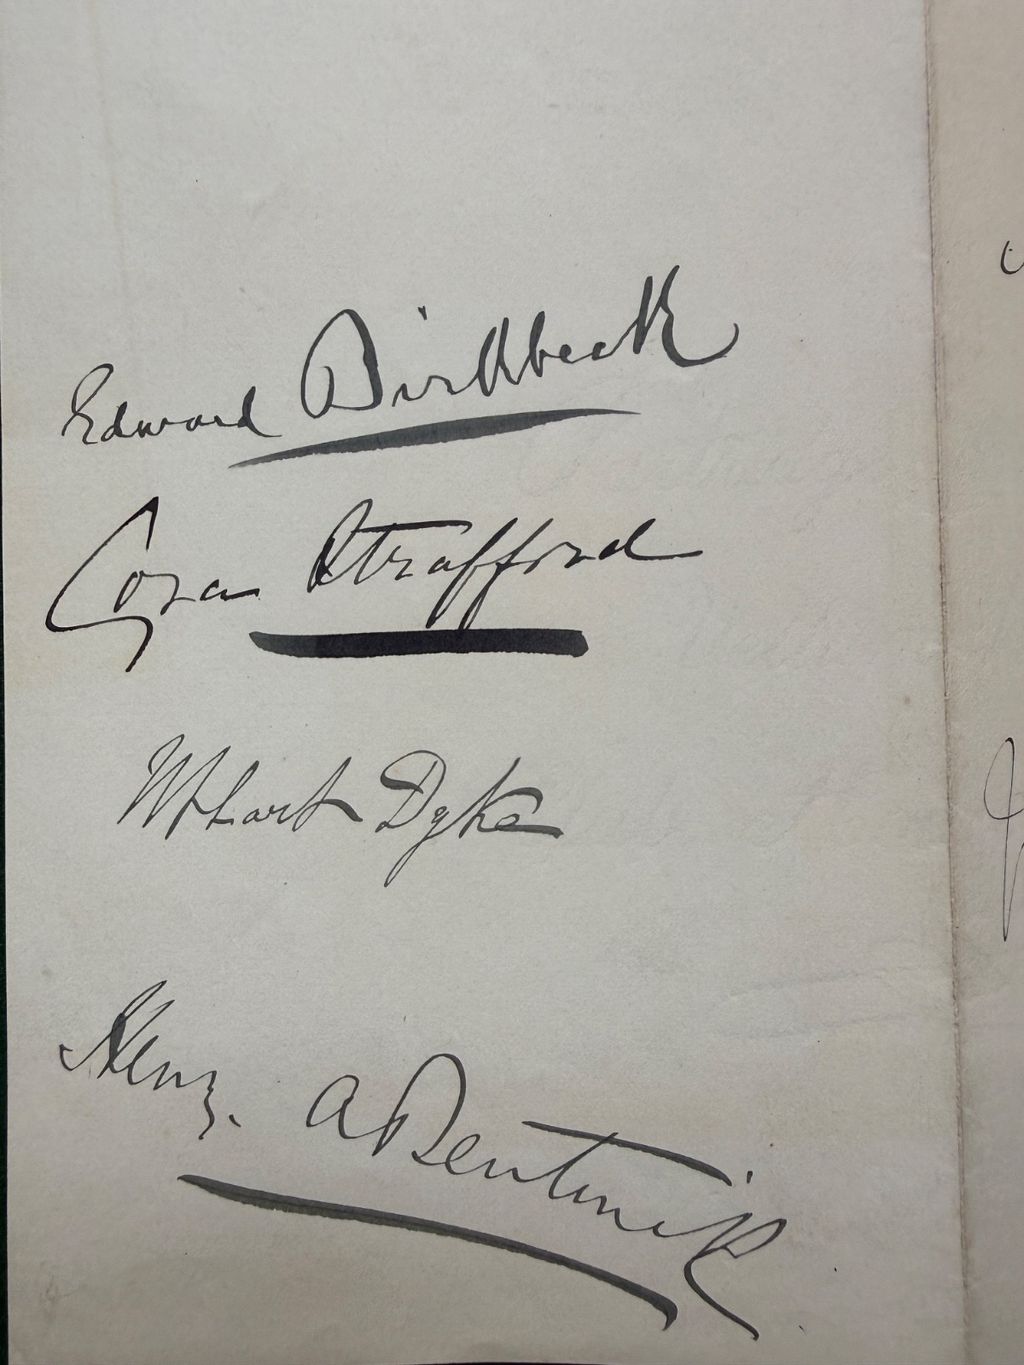 Edward Birkbeck
Cora Strafford
W Hart Dyke
Henry A Bentinck